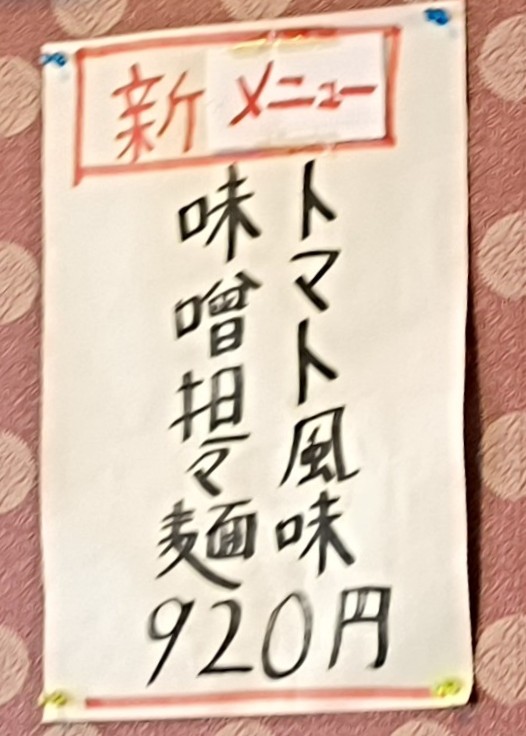 新メニュー
トマト風味
味噌担々麺
920円